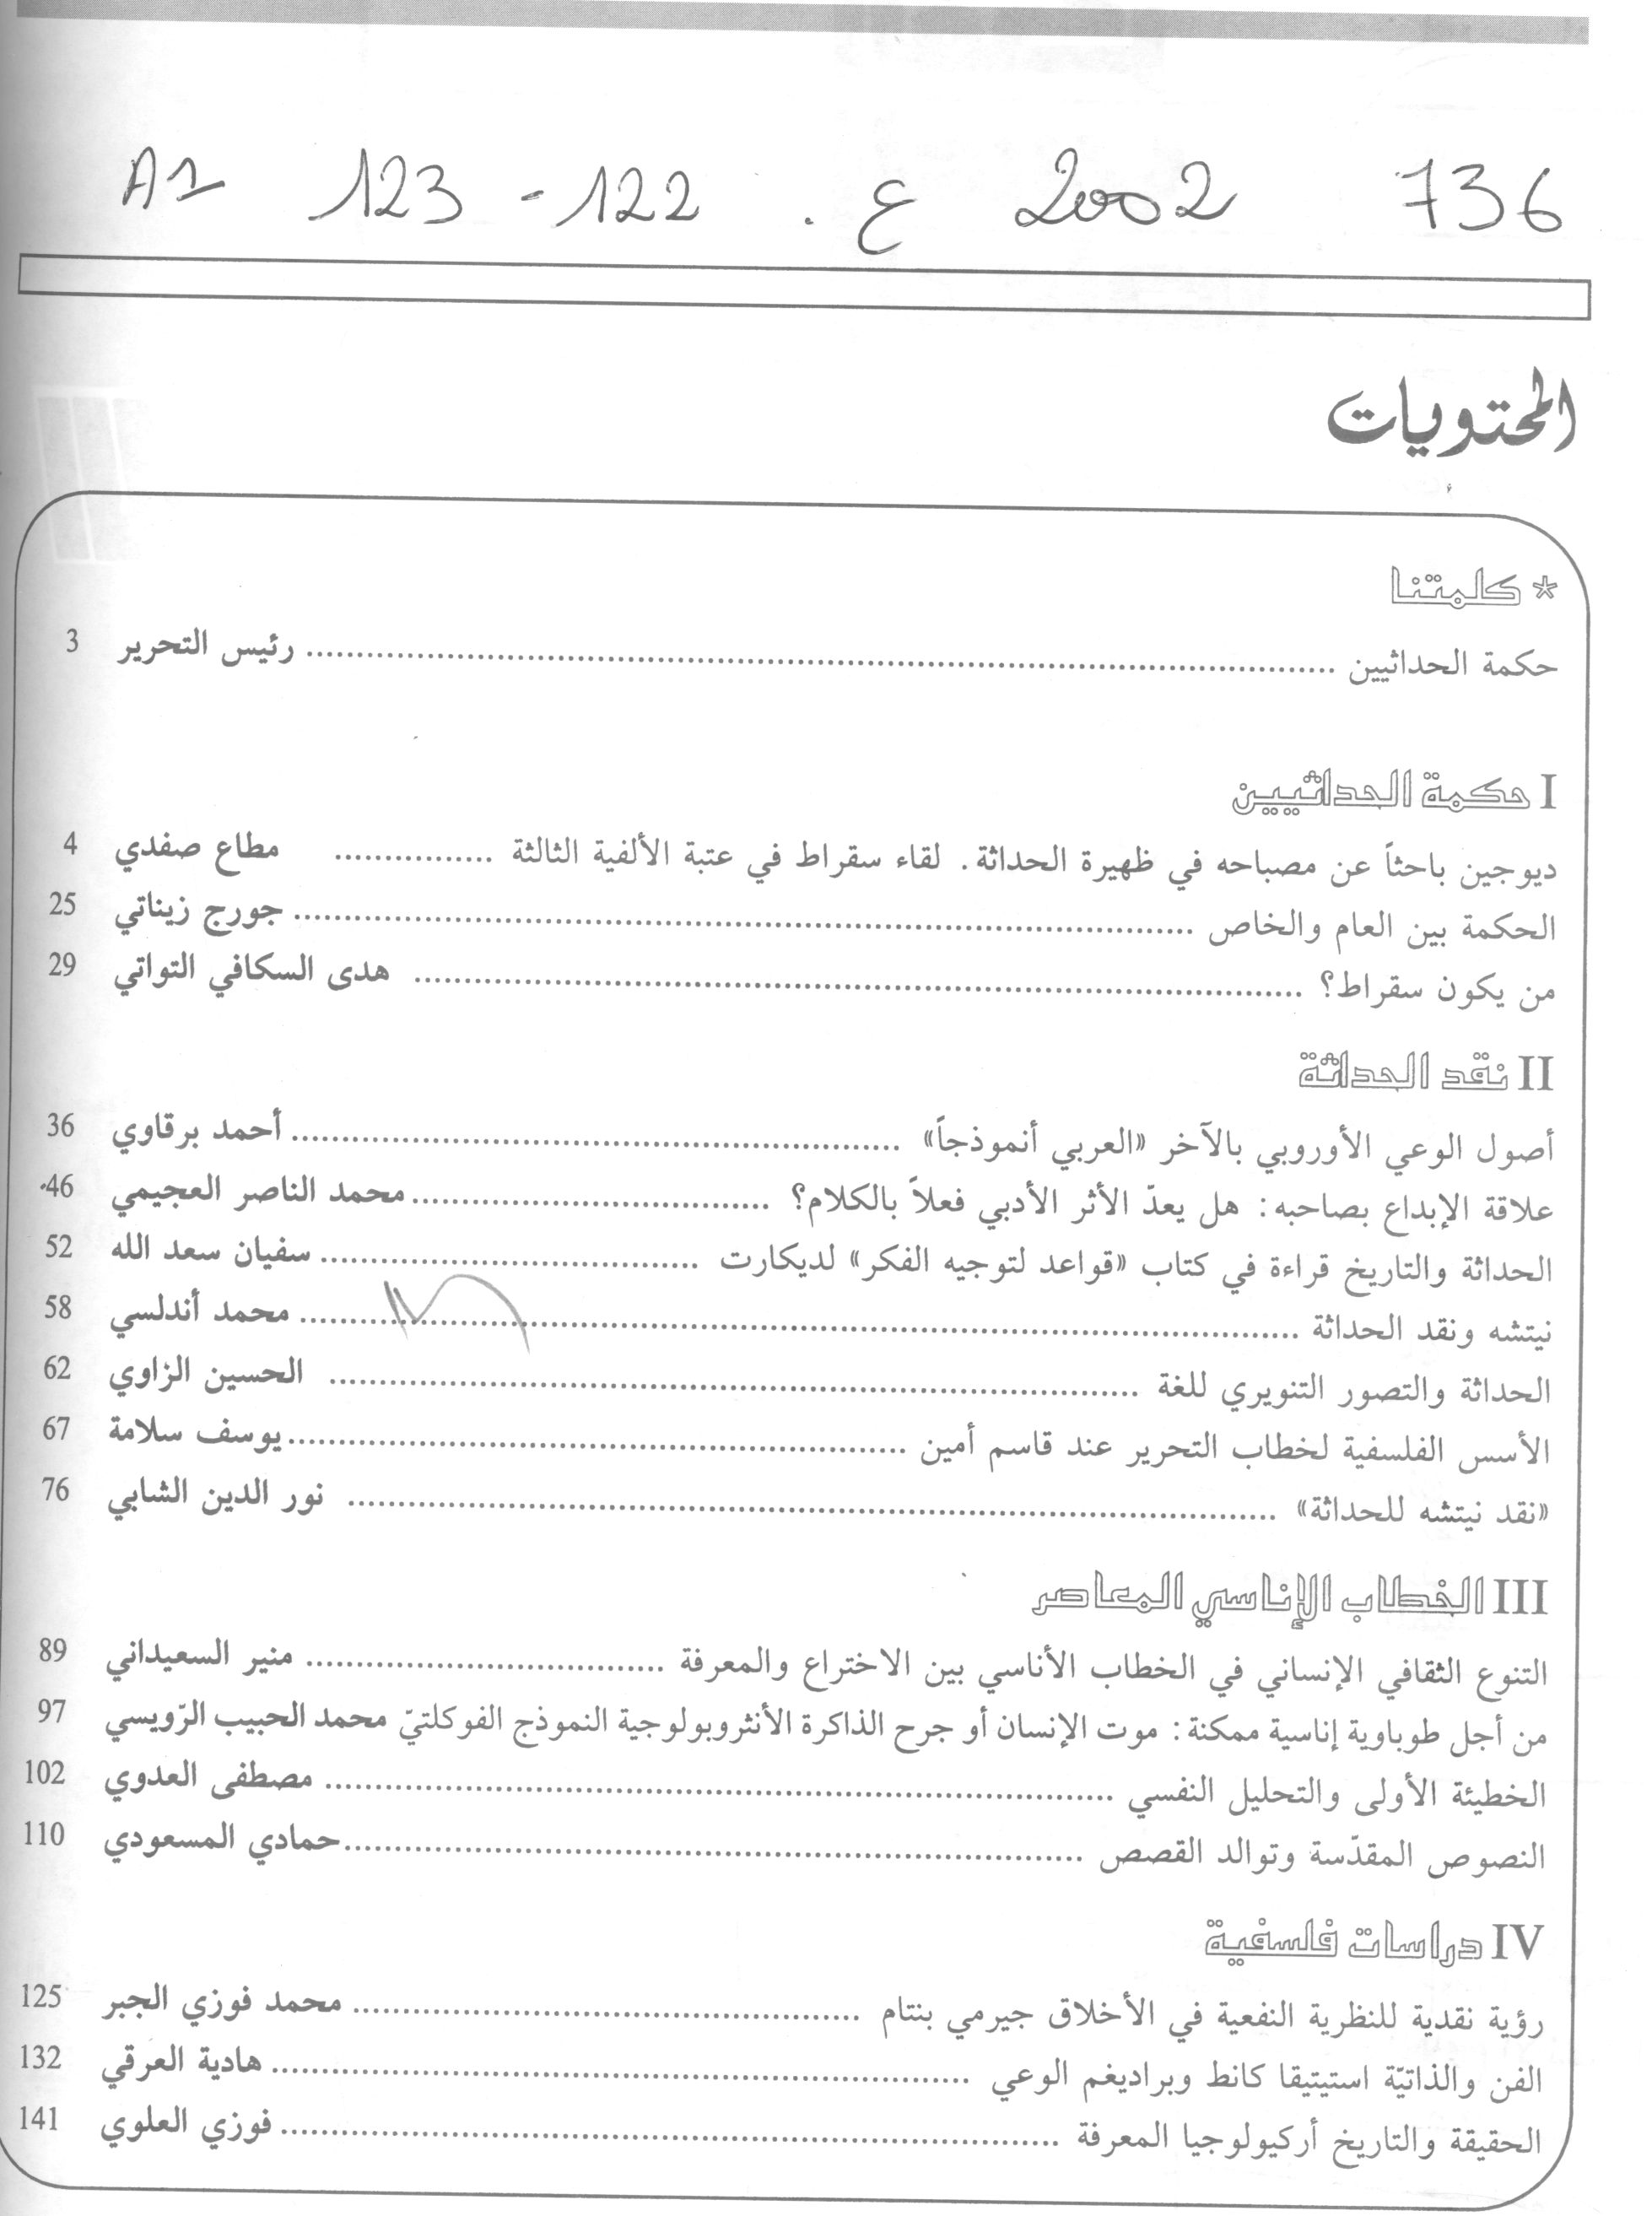 736 2002 ع. 122 - 123 A1
المحتويات
* كلمتنا
حكمة الحداثيين ........ رئيس التحرير 3
I حكمة الحداثيين
ديوجين باحثاً عن مصباحه في ظهيرة الحداثة. لقاء سقراط في عتبة الألفية الثالثة ........ مطاع صفدي 4
الحكمة بين العام والخاص ........ جورج زيناتي 25
من يكون سقراط؟ ........ هدى السكافي التواتي 29
II نقد الحداثة
أصول الوعي الأوروبي بالآخر «العربي أنموذجاً» ........ أحمد برقاوي 36
علاقة الإبداع بصاحبه: هل يعدّ الأثر الأدبي فعلاً بالكلام؟ ........ محمد الناصر العجيمي 46
الحداثة والتاريخ قراءة في كتاب «قواعد لتوجيه الفكر» لديكارت ........ سفيان سعد الله 52
نيتشه ونقد الحداثة ........ محمد أندلسي 58
الحداثة والتصور التنويري للغة ........ الحسين الزاوي 62
الأسس الفلسفية لخطاب التحرير عند قاسم أمين ........ يوسف سلامة 67
«نقد نيتشه للحداثة» ........ نور الدين الشابي 76
III الخطاب الإناسي المعاصر
التنوع الثقافي الإنساني في الخطاب الأناسي بين الاختراع والمعرفة ........ منير السعيداني 89
من أجل طوباوية إناسية ممكنة: موت الإنسان أو جرح الذاكرة الأنثروبولوجية النموذج الفوكلتيّ محمد الحبيب الرّويسي 97
الخطيئة الأولى والتحليل النفسي ........ مصطفى العدوي 102
النصوص المقدّسة وتوالد القصص ........ حمادي المسعودي 110
IV دراسات فلسفية
رؤية نقدية للنظرية النفعية في الأخلاق جيرمي بنتام ........ محمد فوزي الجبر 125
الفن والذاتيّة استيتيقا كانط وبراديغم الوعي ........ هادية العرقي 132
الحقيقة والتاريخ أركيولوجيا المعرفة ........ فوزي العلوي 141